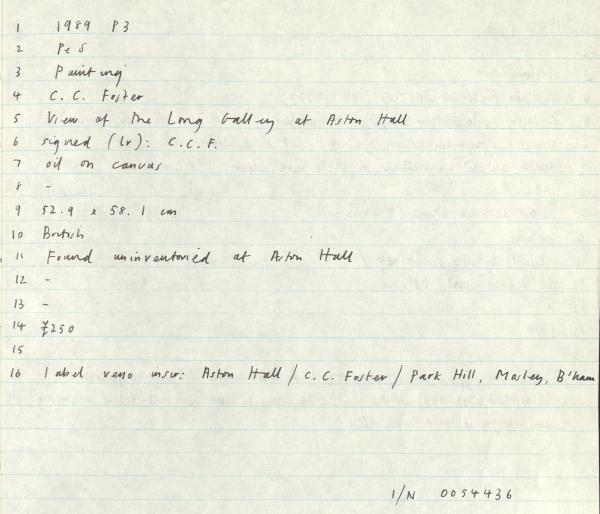 1 1989 P3
2 P&S
3 Painting
4 C.C. Foster
5 View of the Long Gallery at Aston Hall
6 signed (lr): C.C.F.
7 oil on canvas
8 -
9 52.9 x 58.1 cm
10 British
11 Found uninventoried at Aston Hall
12 -
13 -
14 £250
15
16 label verso inscr: Aston Hall / C.C. Foster / Park Hill, Mosley, B'ham
I/N 0054436